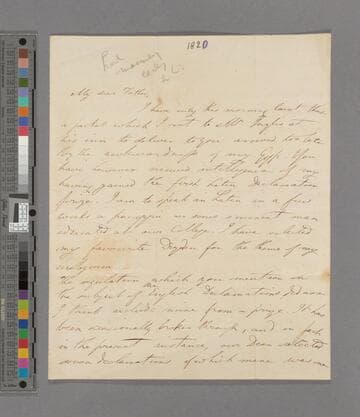 1820
My dear Father,
I have only this morning learnt that
a parcel which I sent to Mr. Inglis at
his inn to deliver to you arrived too late
by the awkwardness of my Gyp. You
have however received intelligence of my
having gained the first Latin Declamation
prize. I am to speak in Latin in a few
weeks a panegyric on some eminent man
educated at our College. I have selected
my favourite Dryden for the theme of my
The regulation which you mention on
the subject of English Declamations did
I find exclude mine from a prize. It has
been occasionally broken through, and in fact
in the present instance, our Dean selected
seven declamations of which mine was one